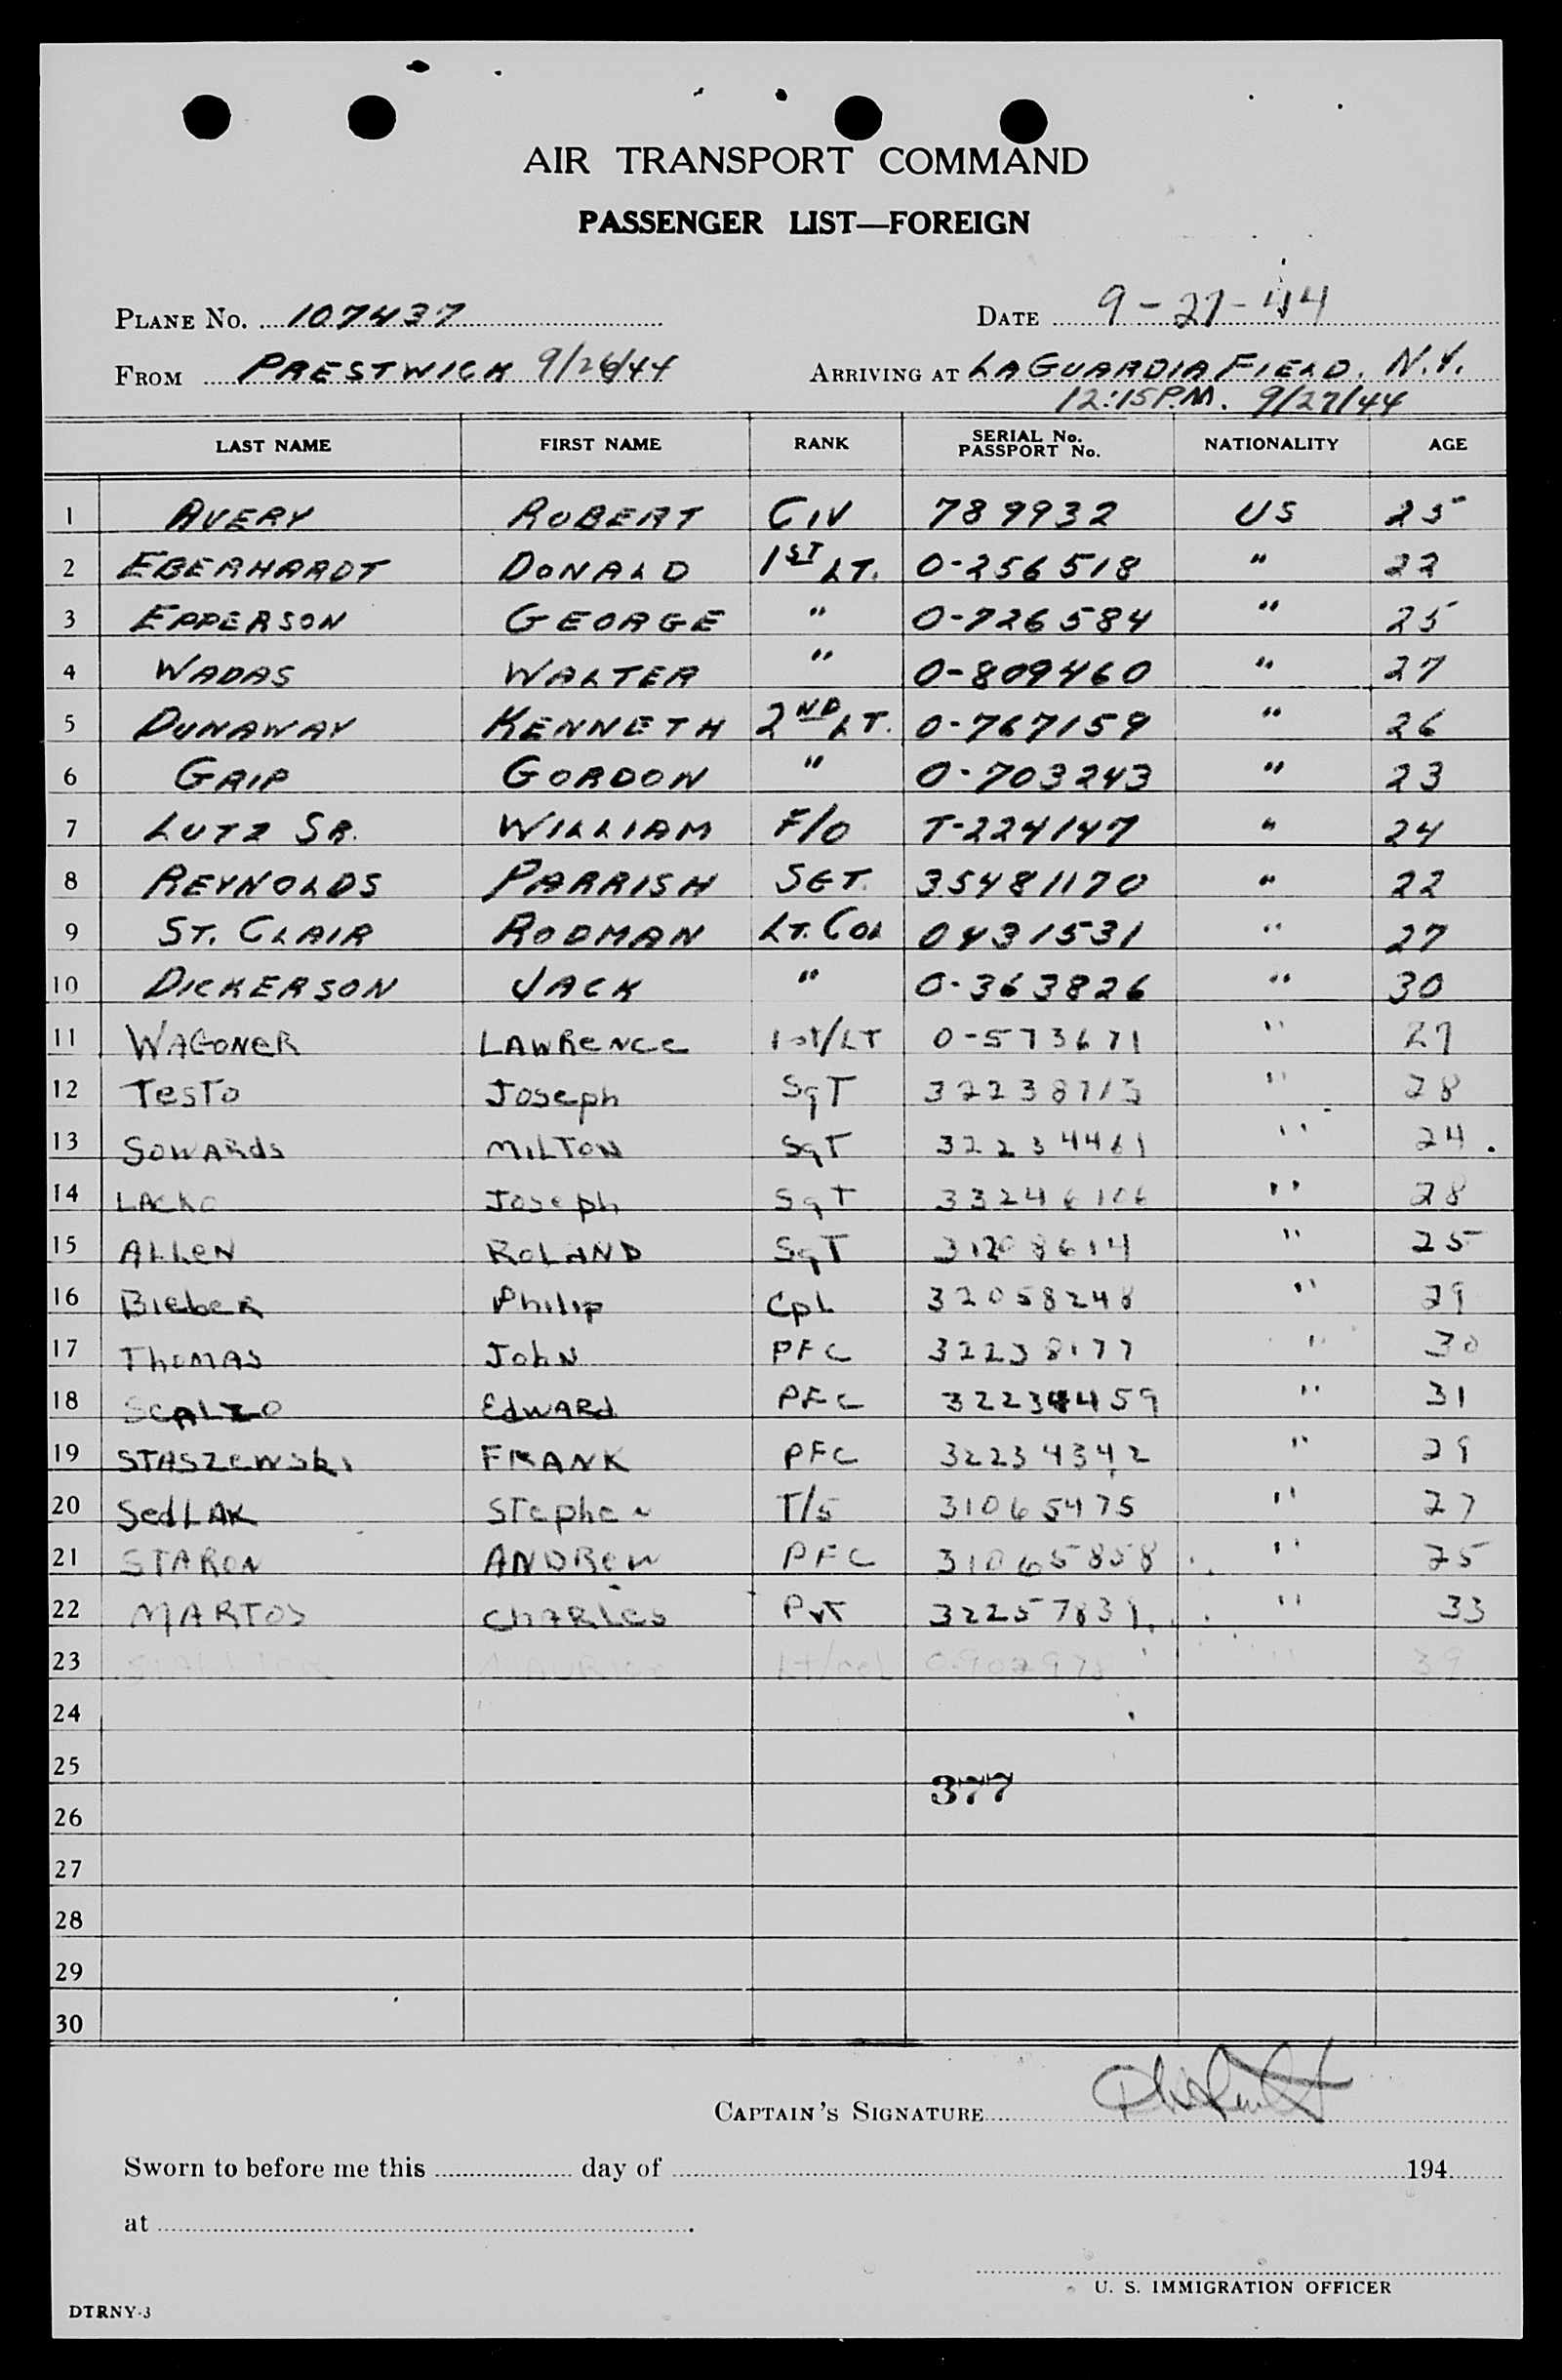 AIR TRANSPORT COMMAND
PASSENGER LIST—FOREIGN
PLANE No. 107437 DATE 9-27-44
FROM PRESTWICK 9/26/44 ARRIVING AT LAGUARDIA FIELD. N.Y.
12:15 P.M. 9/27/44
LAST NAME FIRST NAME RANK SERIAL No. PASSPORT No. NATIONALITY AGE
1 AVERY ROBERT CIV 789932 US 25
2 EBERHARDT DONALD 1ST LT. O-256518 " 22
3 EPPERSON GEORGE " O-726584 " 25
4 WADAS WALTER " O-809460 " 27
5 DUNAWAY KENNETH 2ND LT. O-767159 " 26
6 GAIP GORDON " O-703243 " 23
7 LUTZ SR. WILLIAM F/O T-224147 " 24
8 REYNOLDS PARRISH SGT. 35481170 " 22
9 ST. CLAIR RODMAN LT. COL 0431531 " 27
10 DICKERSON JACK " O-363826 " 30
11 WAGONER LAWRENCE 1st/LT O-573671 " 27
12 TesTo Joseph SgT 32238713 " 28
13 SOWARds MILTON SgT 32234461 " 24.
14 LACKO Joseph SgT 33246106 " 28
15 ALLEN ROLAND SgT 31208614 " 25
16 BIebeR Philip CpL 32058248 " 29
17 ThOMAS JohN PFC 32238177 " 30
18 SCALZO EdWARd PFC 32234459 " 31
19 STASZEWSki FRANK PFC 32234342 " 29
20 SedLAK STephen T/5 31065475 " 27
21 STARON ANDREW PFC 31065858 " 25
22 MARTOS ChARLes PvT 32257839 " 33
23 Lt/Col " 39
24
25
377
26
27
28
29
30
CAPTAIN'S SIGNATURE
Sworn to before me this day of 194
at .
U. S. IMMIGRATION OFFICER
DTRNY-3